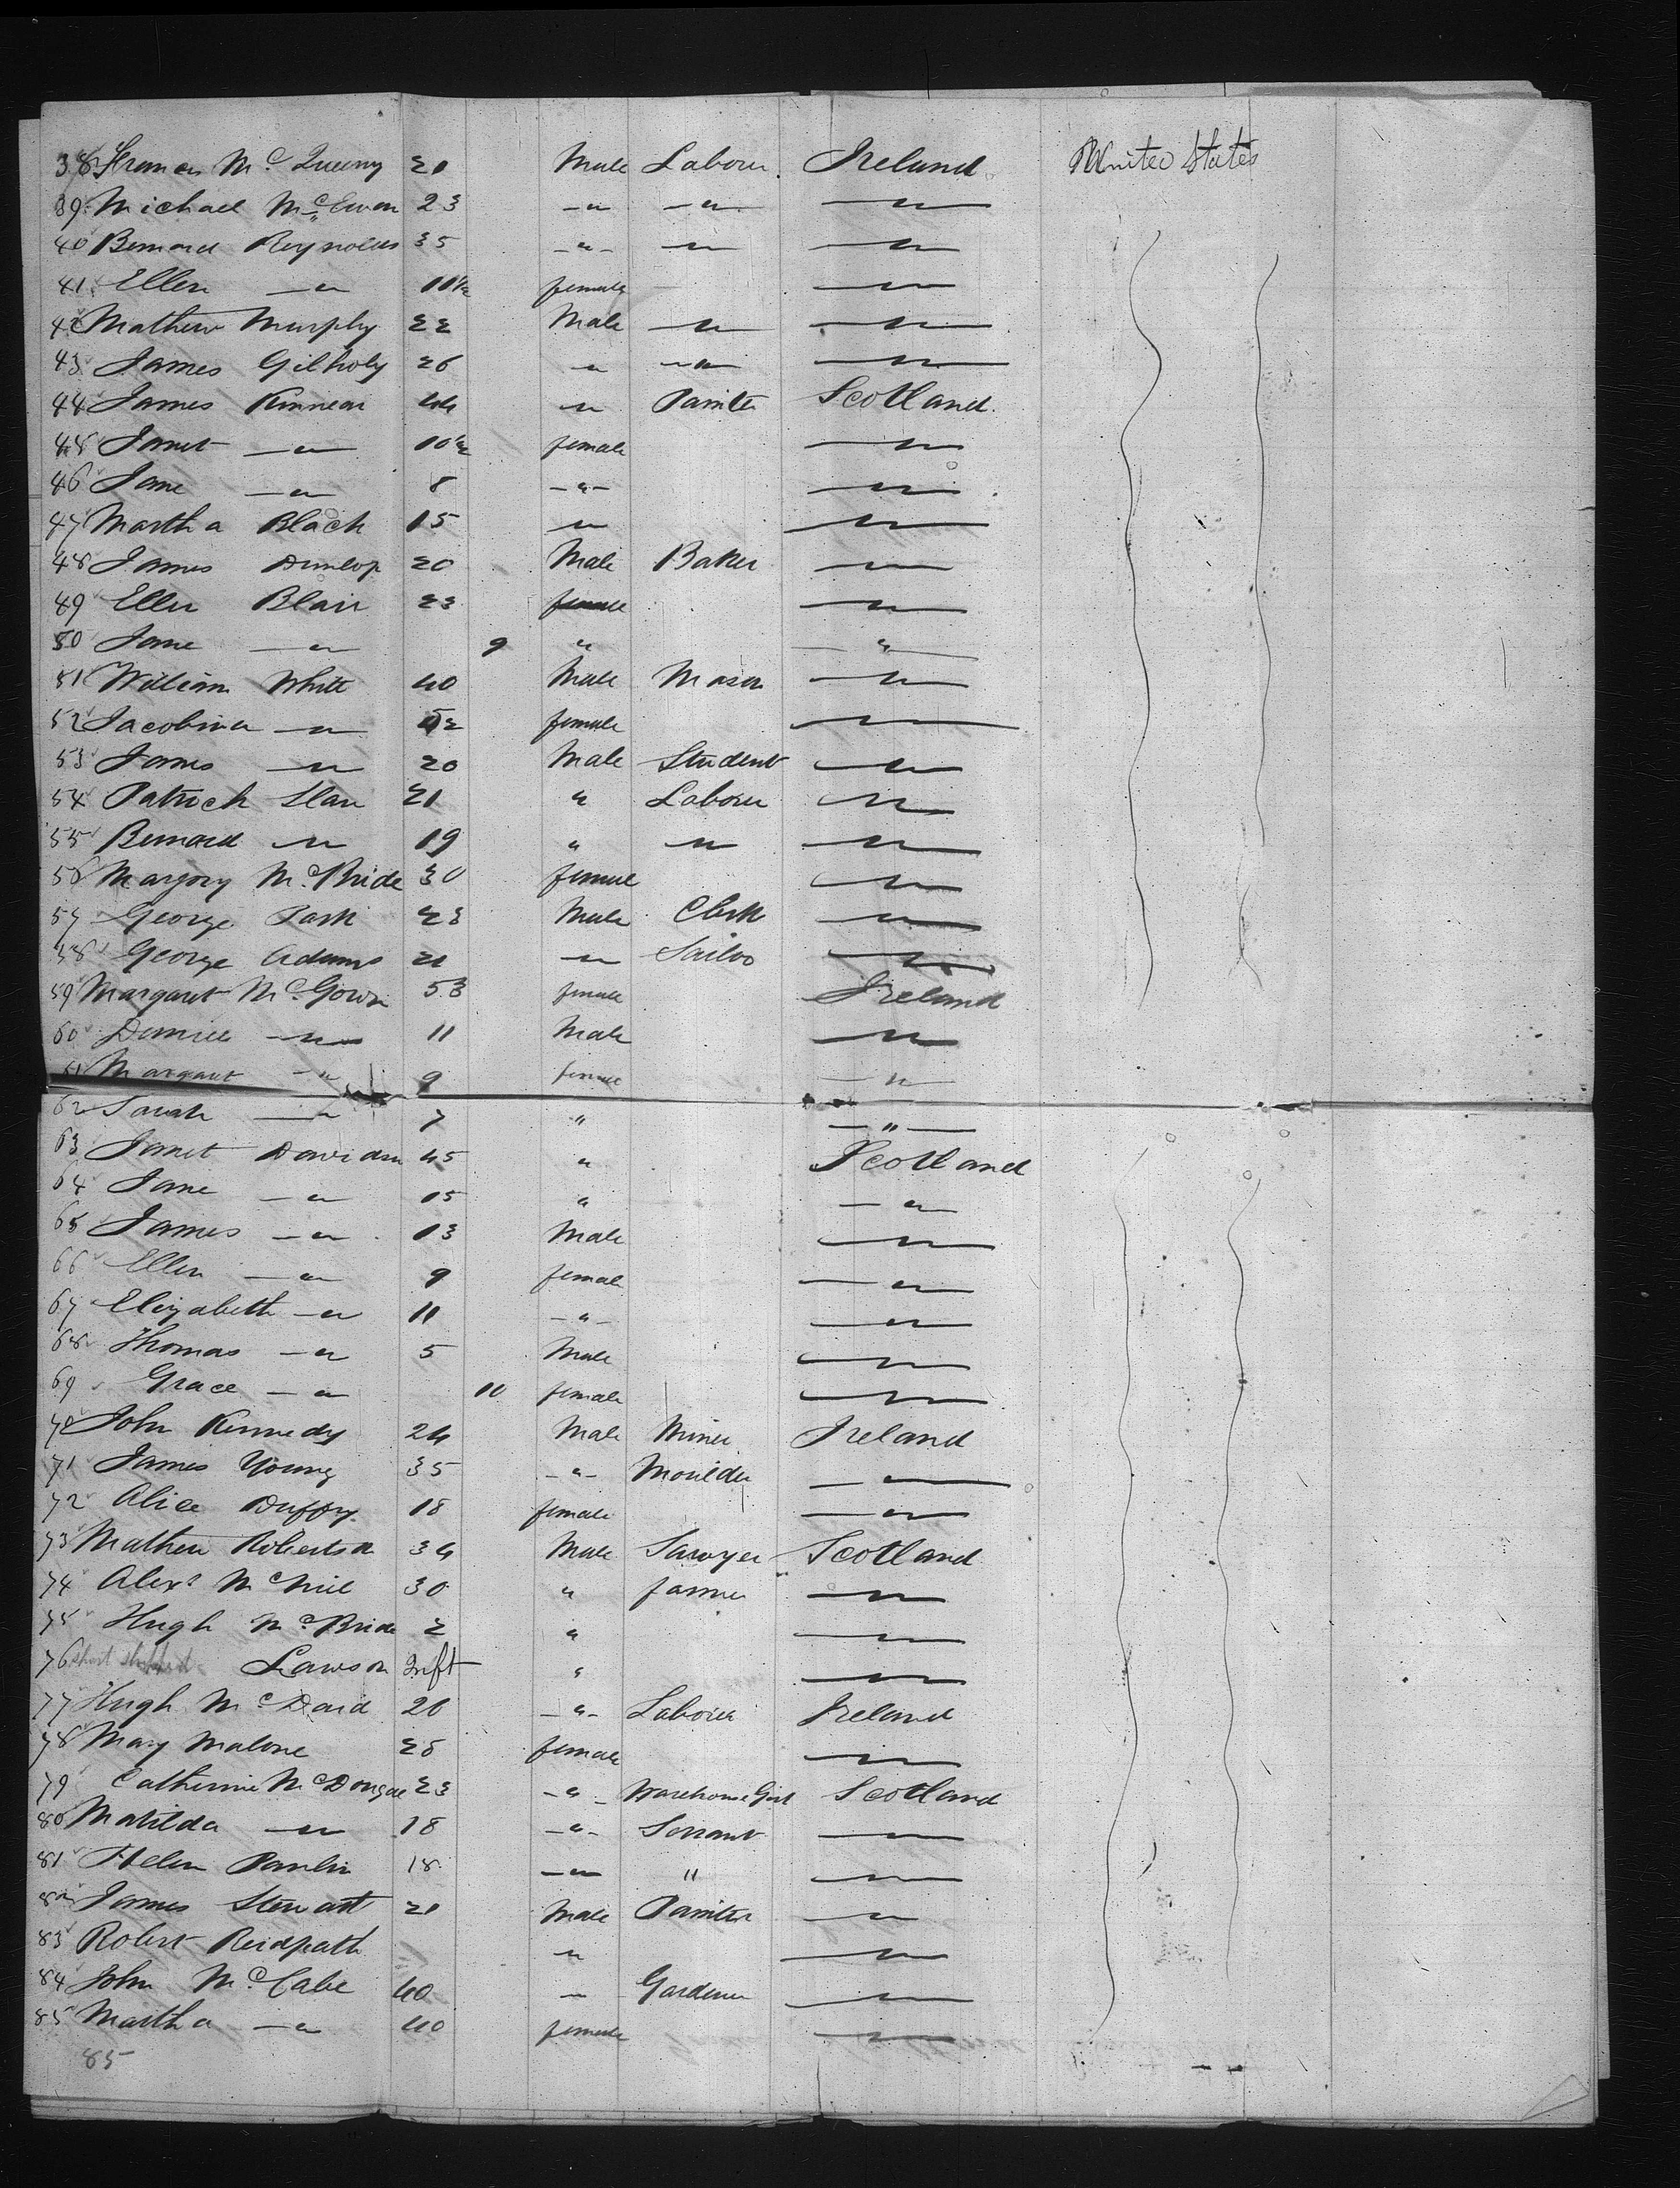 38 Francis Mc Queeny 21 Male Laborer Ireland United States
39 Michael McEwen 23 -"- -"- -"-
40 Bernard Reynolds 35 -"- -"- -"-
41 Ellen -"- 11½ female -"-
42 Mathew Murphy 22 Male -"- -"-
43 James Gilhooly 26 -"- -"- -"-
44 James Kinnear 44 -"- Painter Scotland
45 Janet -"- 10½ female -"-
46 Jane -"- 8 -"- -"-
47 Martha Black 15 -"- -"-
48 James Dunlop 20 Male Baker -"-
49 Ellen Blair 23 female -"-
50 Jane -"- 9 " -"-
51 William White 40 Male Mason -"-
52 Jacobina -"- 52 female -"-
53 James -"- 20 Male Student -"-
54 Patrick Slan 21 " Laborer -"-
55 Bernard -"- 19 " -"- -"-
56 Margory McBride 30 female -"-
57 George Park 23 Male Clerk -"-
58 George Adams 21 -"- Sailor -"-
59 Margaret McGowan 53 female Ireland
60 Daniel -"- 11 Male -"-
61 Margaret -"- 9 female -"-
62 Sarah -"- 7 " -"-
63 Janet Davidson 45 " Scotland
64 Jane -"- 15 " -"-
65 James -"- 13 Male -"-
66 Ellen -"- 9 female -"-
67 Elizabeth -"- 11 -"- -"-
68 Thomas -"- 5 Male -"-
69 Grace -"- 10 female -"-
70 John Kennedy 24 Male Miner Ireland
71 James Young 35 -"- Moulder -"-
72 Alice Duffy 18 female -"-
73 Mathew Robertson 34 Male Sawyer Scotland
74 Alexr McNeil 30 " farmer -"-
75 Hugh McBride 2 " -"-
76 Lawson Inft " -"-
77 Hugh McDaid 20 -"- Laborer Ireland
78 Mary Malone 28 female -"-
79 Catherine McDougal 23 -"- Warehouse Girl Scotland
80 Matilda -"- 18 -"- Servant -"-
81 Helen 18 -"- " -"-
82 James Stewart 21 Male Painter -"-
83 Robert Reidpath -"- -"-
84 John McCabe 40 - Gardener -"-
85 Martha -"- 40 female -"-
85